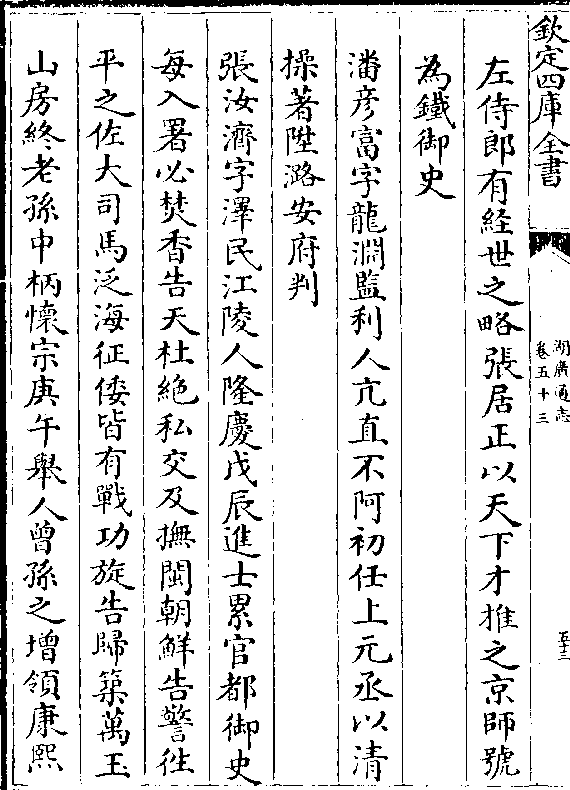 欽定四庫全書
湖廣通志
卷五十三
五十三
左侍郎有経世之略張居正以天下才推之京師號
為鐵御史
潘彦富字龍淵監利人亢直不阿初任上元丞以清
操著陞潞安府判
張汝濟字澤民江陵人隆慶戊辰進士累官都御史
每入署必焚香告天杜絶私交及撫閩朝鮮告警往
平之佐大司馬泛海征倭皆有戰功旋告歸築萬玉
山房終老孫中柄懷宗庚午舉人曾孫之增領康熙